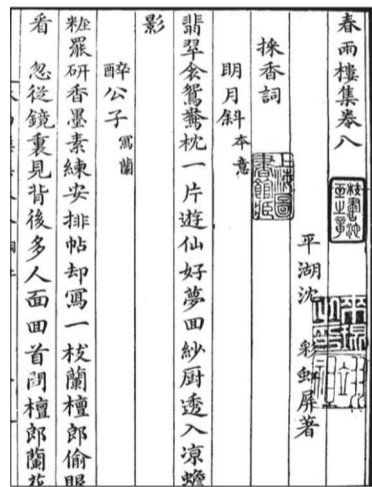 春雨樓集卷八
平湖沈 彩虹屏著
採香詞
上海圖書館藏
明月斜 本意
翡翠衾鴛鴦枕一片遊仙好夢囬紗厨透入凉蟾
影
醉公子 冩蘭
粧罷研香墨素練安排帖却冩一枝蘭檀郎偷眼
看 忽從鏡裏見背後多人面囬首問檀郎蘭花